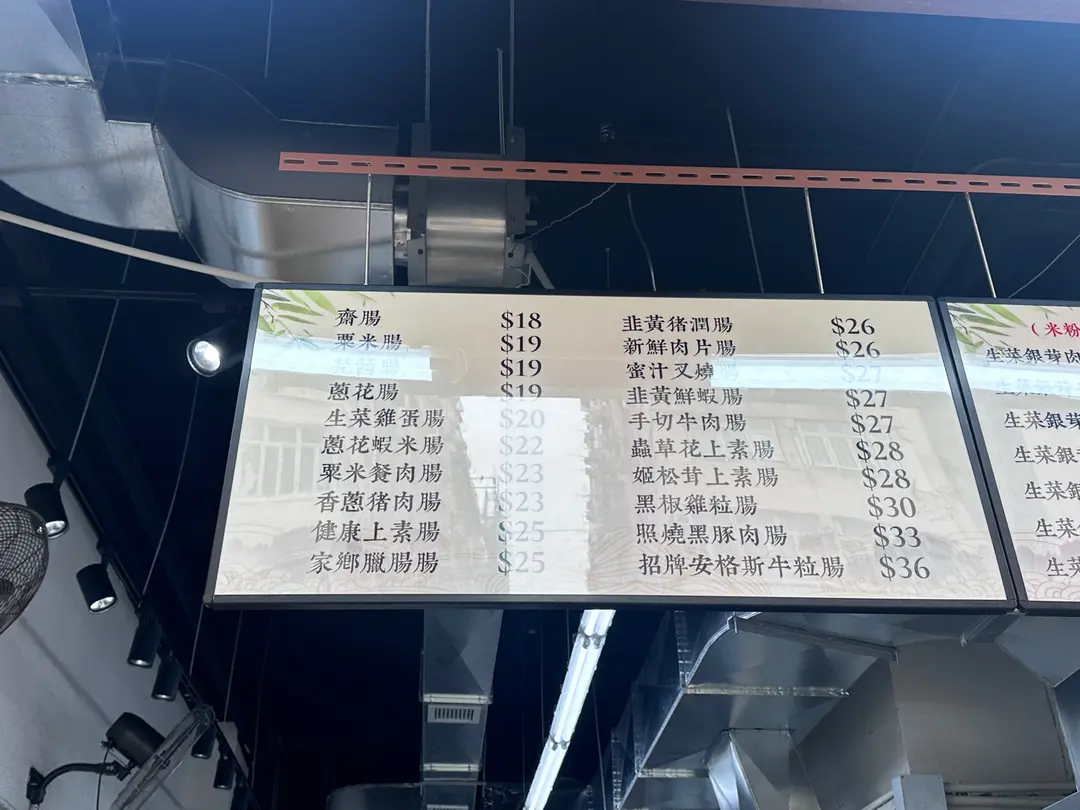 齋腸 $18
粟米腸 $19
芫茜腸 $19
蔥花腸 $19
生菜雞蛋腸 $20
蔥花蝦米腸 $22
粟米餐肉腸 $23
香蔥猪肉腸 $23
健康上素腸 $25
家鄉臘腸腸 $25
韭黃猪潤腸 $26
新鮮肉片腸 $26
蜜汁叉燒腸 $27
韭黃鮮蝦腸 $27
手切牛肉腸 $27
蟲草花上素腸 $28
姬松茸上素腸 $28
黑椒雞粒腸 $30
照燒黑豚肉腸 $33
招牌安格斯牛粒腸 $36
(米粉
生菜銀芽肉
生菜銀芽
生菜銀
生菜銀
生菜
生菜